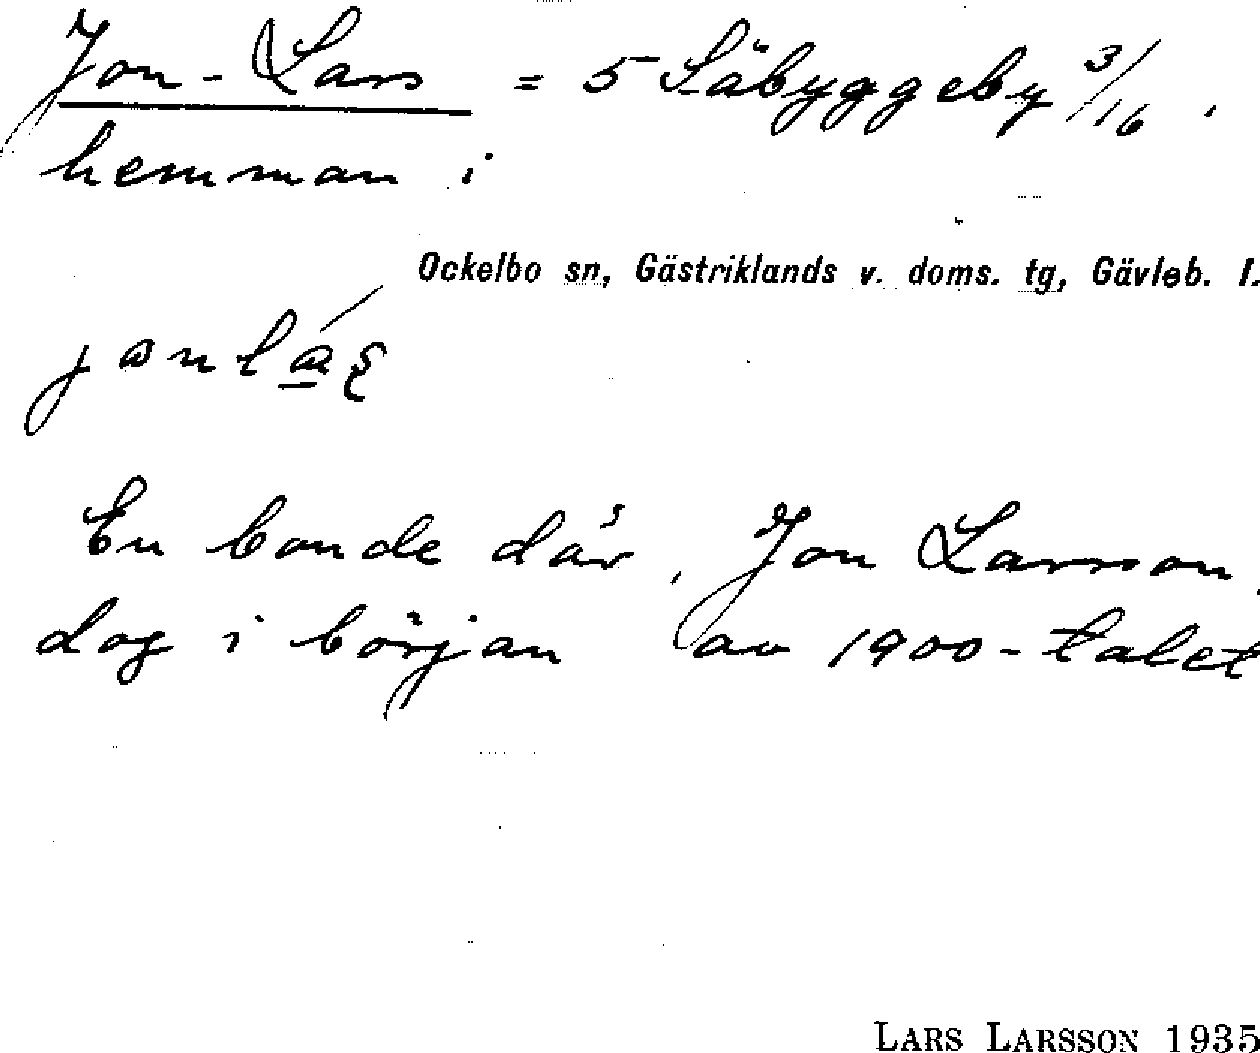 Jon-Lars = 5 Säbyggeby 3/16,
hemman i
Ockelbo sn, Gästriklands v. doms. tg, Gävleb. l.
En bonde där, Jon Larsson,
dog i början av 1900-talet
LARS LARSSON 1935